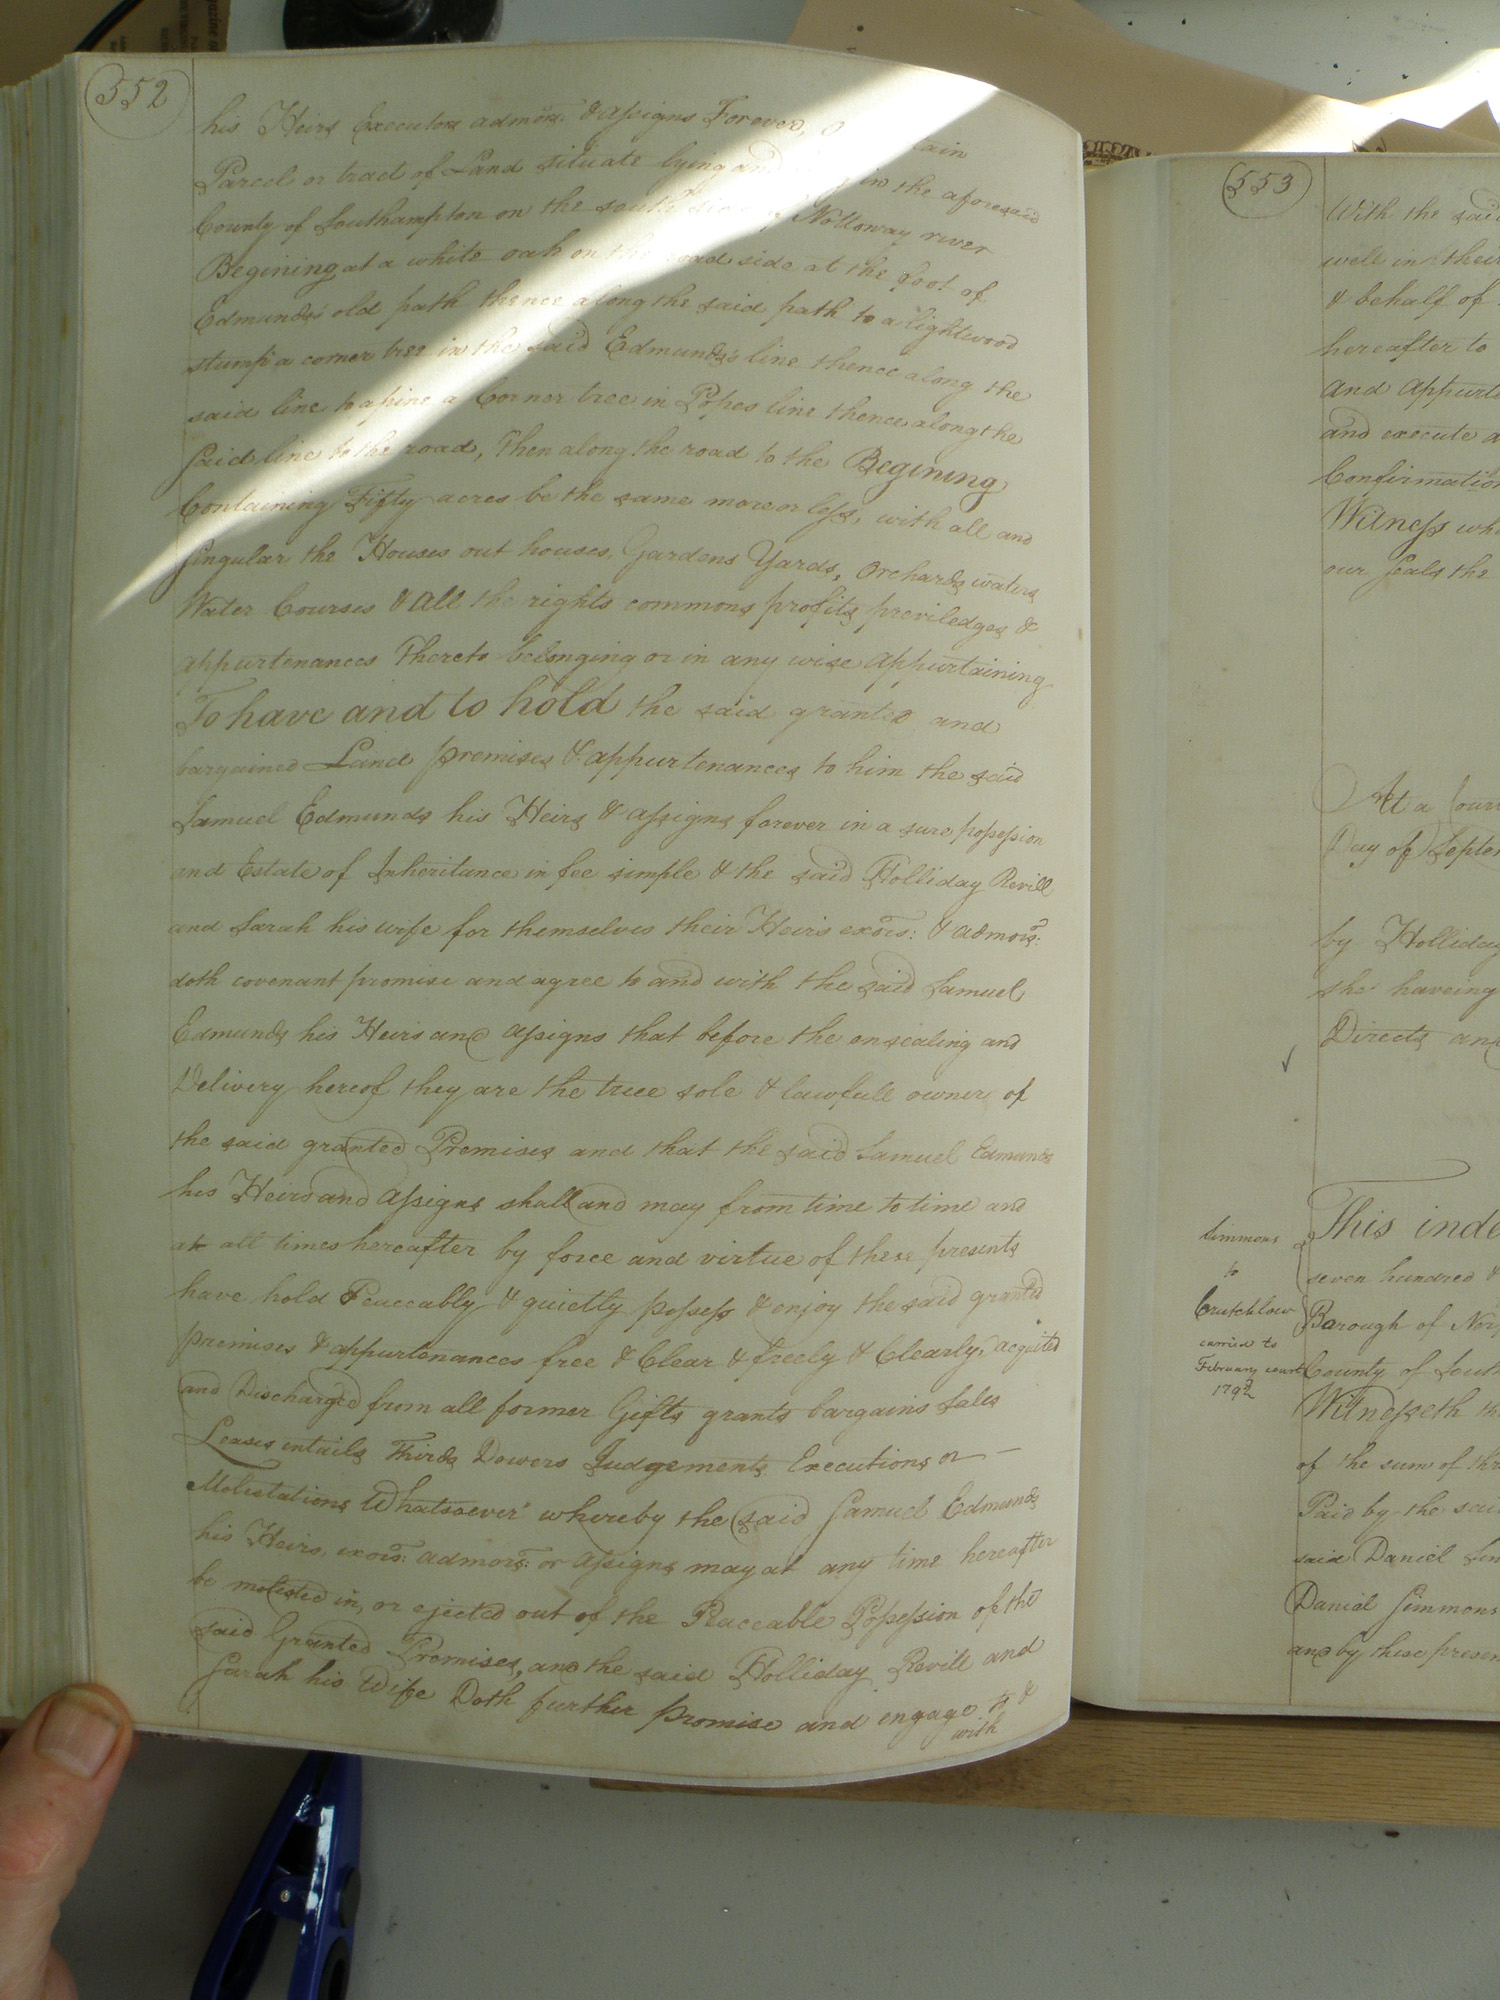 552
his Heirs Executors admors: & assigns Forever,
Parcel or tract of Land situate lying and in the aforesaid
County of Southampton on the south side of Nottoway river
Begining at a white oak on the road side at the foot of
Edmunds's old path thence along the said path to a lightwood
stump a corner tree in the said Edmunds's line thence along the
said line to a pine a Corner tree in Popes line thence along the
said line to the road, then along the road to the Begining
Containing Fifty acres be the same more or less, with all and
singular the Houses out houses, Gardens Yards, Orchards waters
Water Courses & All the rights commons profits previledges &
appurtenances Thereto belonging or in any wise appurtaining
To have and to hold the said granted and
bargained Land premises & appurtenances to him the said
Samuel Edmunds his Heirs & assigns forever in a sure possession
and Estate of Inheritance in fee simple & the said Holliday Revill
and Sarah his wife for themselves their Heirs exors: & admors:
doth covenant promise and agree to and with the said Samuel
Edmunds his Heirs and assigns that before the ensealing and
Delivery hereof they are the true sole & lawfull owner of
the said granted Premises and that the said Samuel Edmunds
his Heirs and Assigns shall and may from time to time and
at all times hereafter by force and virtue of these presents
have hold Peaceably & quietly possess & enjoy the said granted
premises & appurtenances free & Clear & freely & Clearly, acquited
and Discharged from all former Gifts grants bargains Sales
Leases entails Thirds Dowers Judgements Executions or
Molestations Whatsoever whereby the said Samuel Edmunds
his Heirs, exors: admors: or assigns may at any time hereafter
be molested in, or ejected out of the Peaceable Possession of the
said Granted Premises, and the said Holliday Revill and
Sarah his Wife Doth further promise and engage to &
with
553
With the said
well in their
& behalf of
hereafter to
and appurte
and execute a
Confirmation
Witness wh
our Seals the
At a Cour
Day of Septem
by Holliday
she haveing
Directs and
Simmons
to
Crutchlow
carried to
February court
1792
This inde
seven hundred &
Borough of Nor
County of South
Witnesseth th
of the sum of thr
Paid by the said
said Daniel Sim
Daniel Simmons
and by these presen